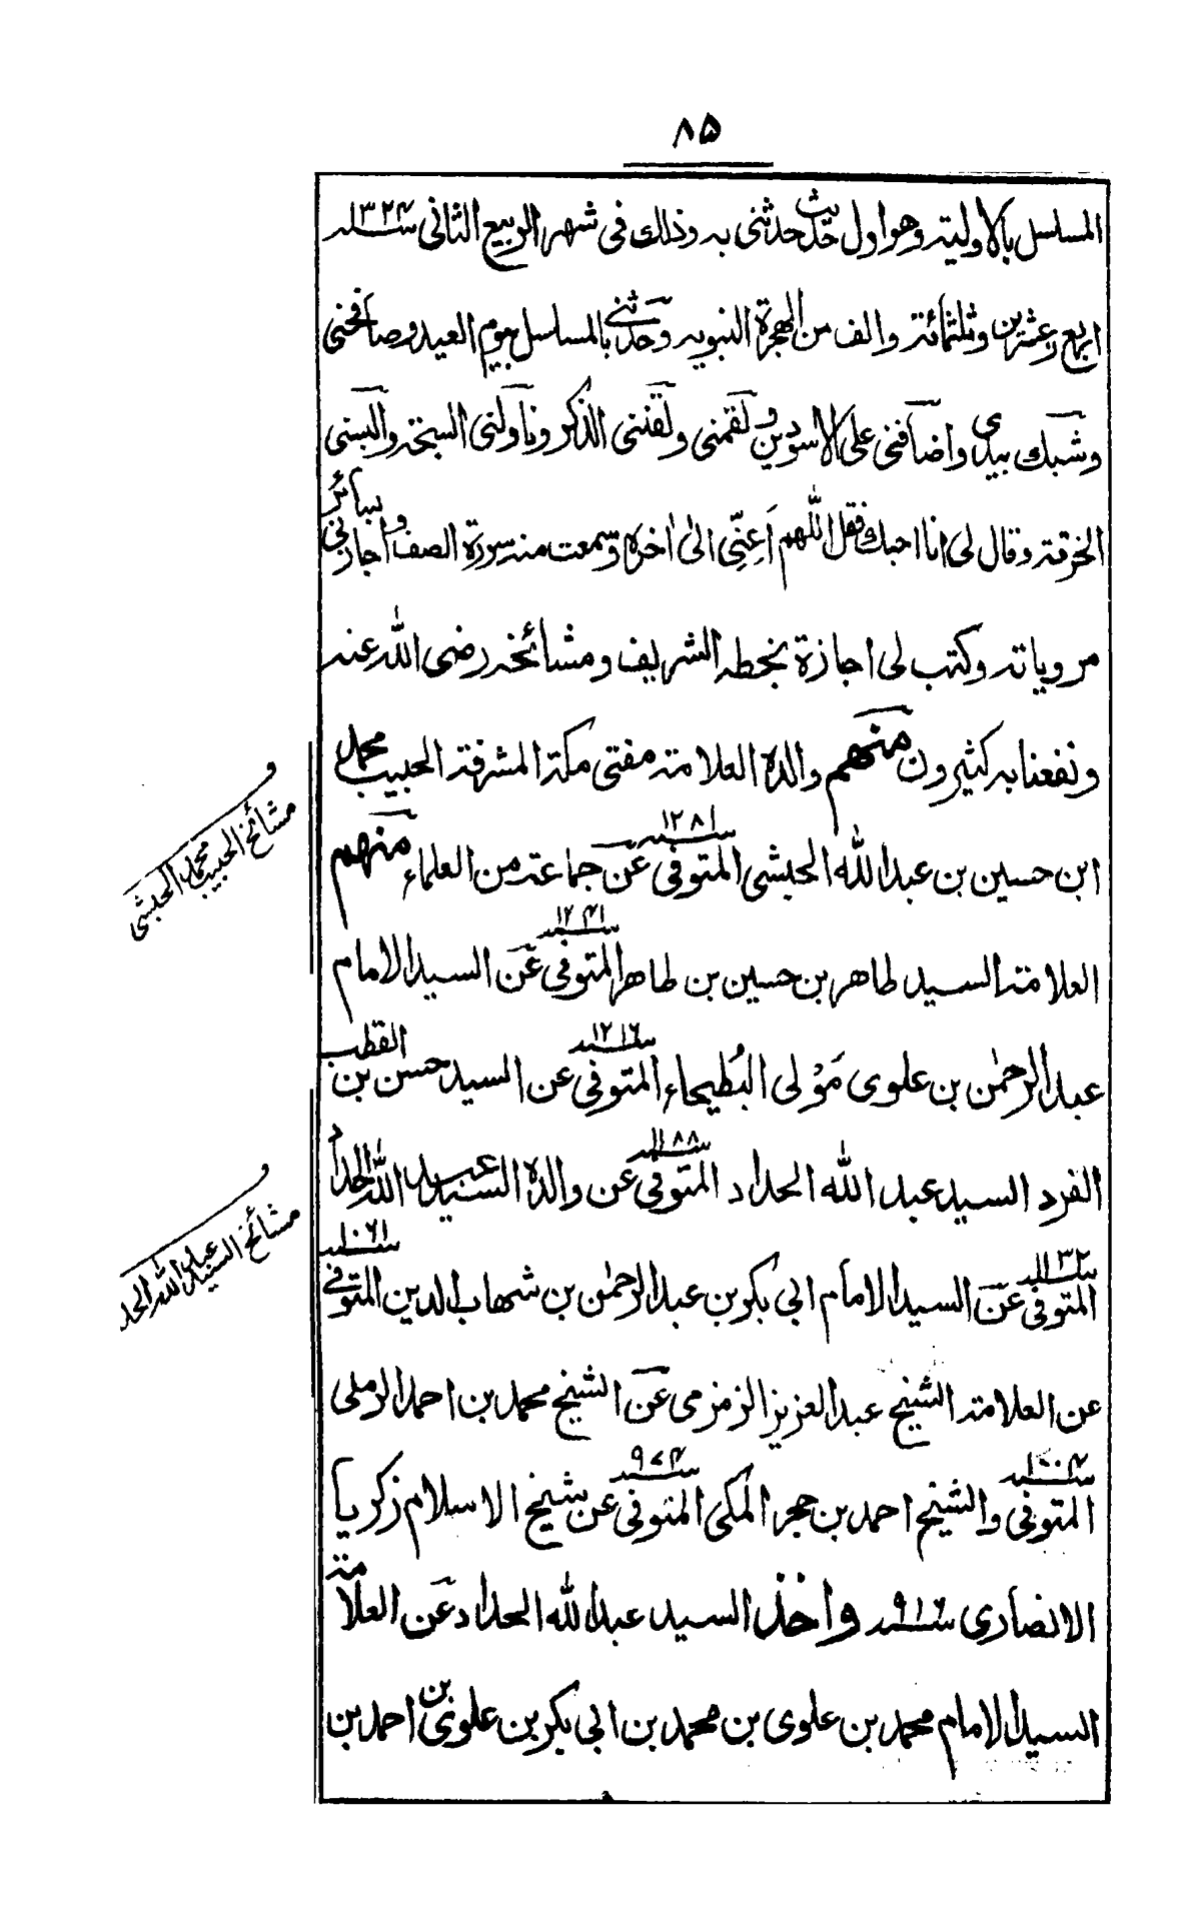 ٨٥
المسلسل بالاولية وهو اول حديث حدثنى به وذلك فى شهر الربيع الثانى سنة ١٣٢٤
اربع وعشرين وثلثمائة والف من الهجرة النبويه وحدثنى بالمسلسل بيوم العيد وصافحنى
وشبك بيدى واضافنى على الاسودين ولقمنى ولقننى الذكر وناولنى السبحة والبسنى
الخرقة وقال لى انا احبك فقل اللهم اَعِنِّى الى اخره وسمعت منه سورة الصف واجازنى بسائر
مروياته وكتب لى اجازة بخطه الشريف ومشائخه رضى الله عنه
ونفعنا به كثيرون منهم والده العلامة مفتى مكة المشرفة الحبيب محمد
ابن حسين بن عبدالله الحبشى المتوفى سنة ١٢٨١ عن جماعة من العلماء منهم
العلامة السيد طاهر بن حسين بن طاهر المتوفى سنة ١٢٤١ عن السيد الامام
عبدالرحمٰن بن علوى مَوْلى البُطيحاء المتوفى سنة ١٢١٦ عن السيد حسن بن القطب
الفرد السيد عبد الله الحداد المتوفى سنة ١١٨٨ عن والده السيد عبد الله الحداد
المتوفى سنة ١١٣٢ عن السيد الامام ابى بكر بن عبدالرحمٰن بن شهاب الدين المتوفى سنة ١٠٦١
عن العلامة الشيخ عبدالعزيز الزمزمى عن الشيخ محمد بن احمد الرملى
المتوفى سنة ١٠٠٤ والشيخ احمد بن حجر المكى المتوفى سنة ٩٧٤ عن شيخ الاسلام زكريا
الانصارى سنة ٩١٦ واخذ السيد عبدالله الحداد عن العلامة
السيد الامام محمد بن علوى بن محمد بن ابى بكر بن علوى بن احمد بن
و
مشائخ الحبيب محمد الحبشى
و
مشائخ السيد عبد الله الحد